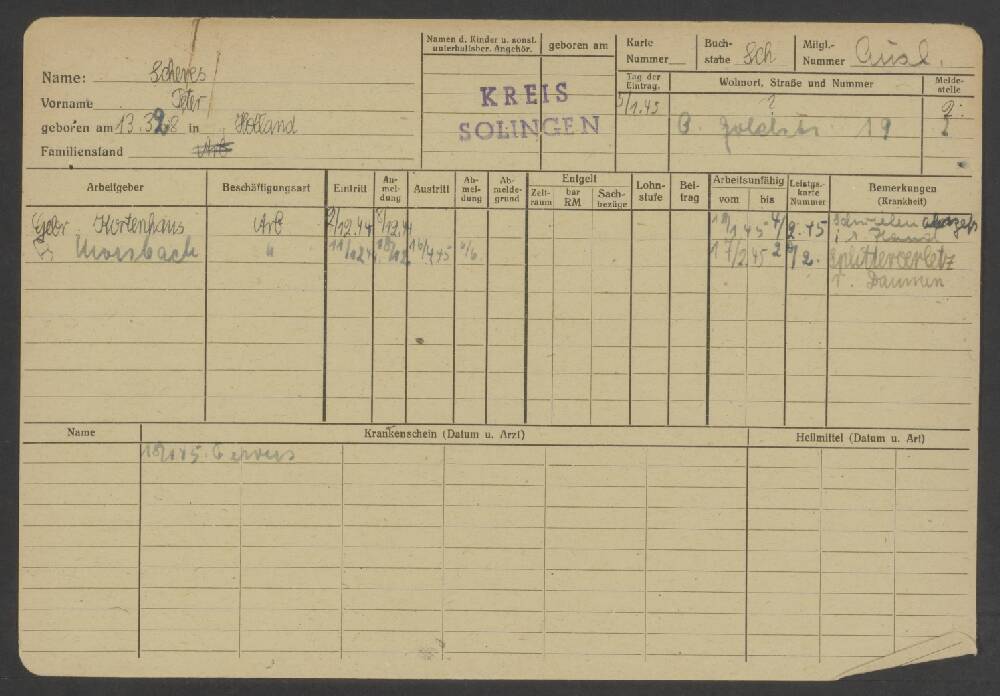 Name: Scheres
Vorname Peter
geboren am 13.3.28 in Holland
Familienstand Arb
Namen d. Kinder u. sonst. unterhaltsber. Angehör.
geboren am
KREIS
SOLINGEN
Karte Nummer
Buchstabe Sch
Mitgl.-Nummer Ausl.
Tag der Eintrag.
Wohnort, Straße und Nummer
Meldestelle
5/1.45 ?
19
Arbeitgeber
Beschäftigungsart
Eintritt
Anmeldung
Austritt
Abmeldung
Abmeldegrund
Entgelt
Zeitraum
bar RM
Sachbezüge
Lohnstufe
Beitrag
Arbeitsunfähig
vom
bis
Leistgs.-karte Nummer
Bemerkungen (Krankheit)
Gebr. Hortenhaus Arb 2/12.44 8/12.44 18/1 45 4/2.45 Schwielen
i. r. Hand
Morsbach " 11/12 44 18/12 16/4 45 17/2.45 Splitterverletz
r. Daumen
Name
Krankenschein (Datum u. Arzt)
Heilmittel (Datum u. Art)
18/1.45